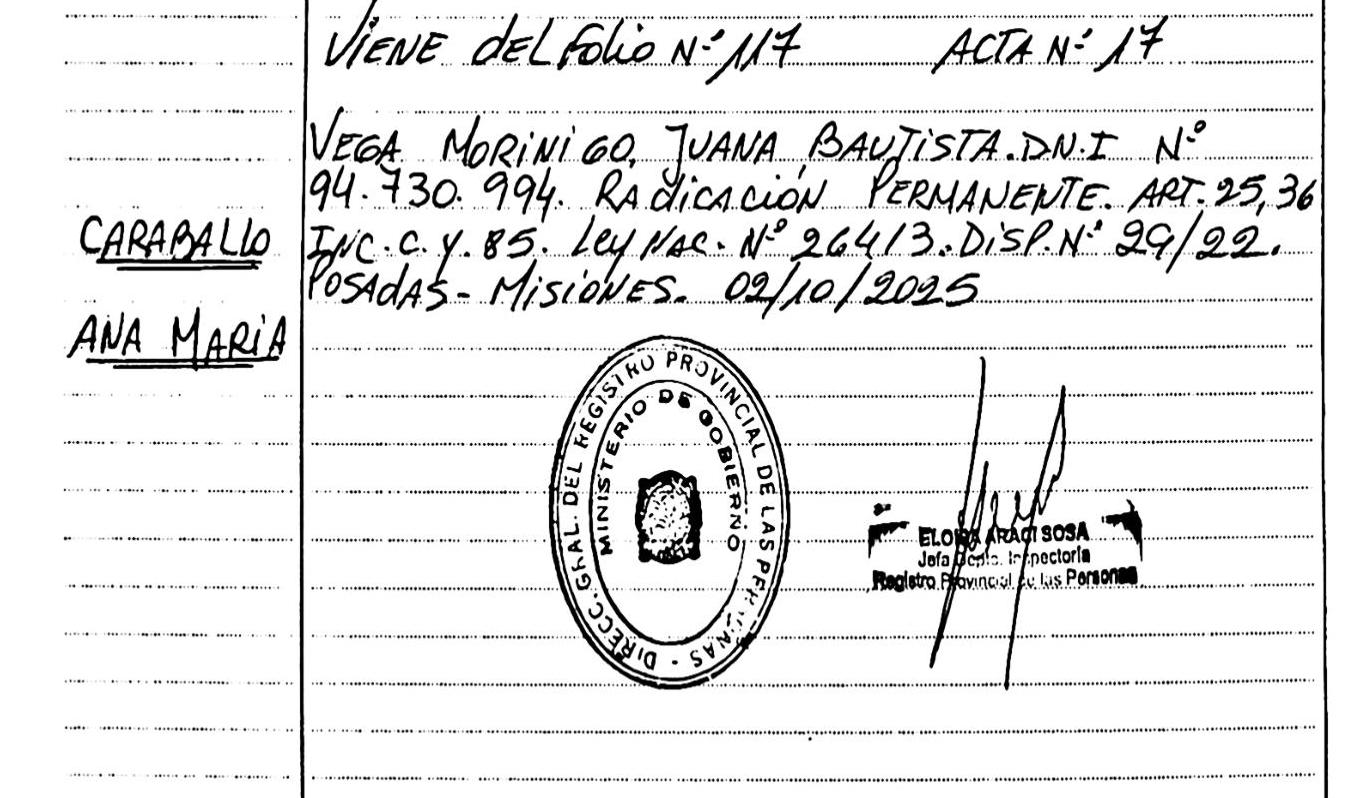 VIENE DEL FOLIO Nº 117 ACTA Nº 17
VEGA MORINIGO, JUANA BAUTISTA. D.N.I Nº
94.730.994. RADICACIÓN PERMANENTE. ART. 25, 36
INC. C. Y. 85. LEY NAC. Nº 26413. DISP. Nº 29/22.
POSADAS - MISIONES. 02/10/2025
CARABALLO
ANA MARIA
DIRECC. GRAL. DEL REGISTRO PROVINCIAL DE LAS PERSONAS -
MINISTERIO DE GOBIERNO
ELOISA ARACI SOSA
Jefa Dpto. Inspectoria
Registro Provincial de las Personas